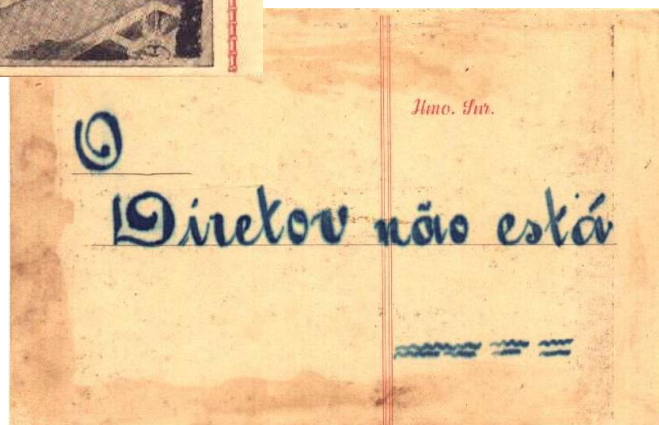 Ilmo. Snr.
O
Diretor não está